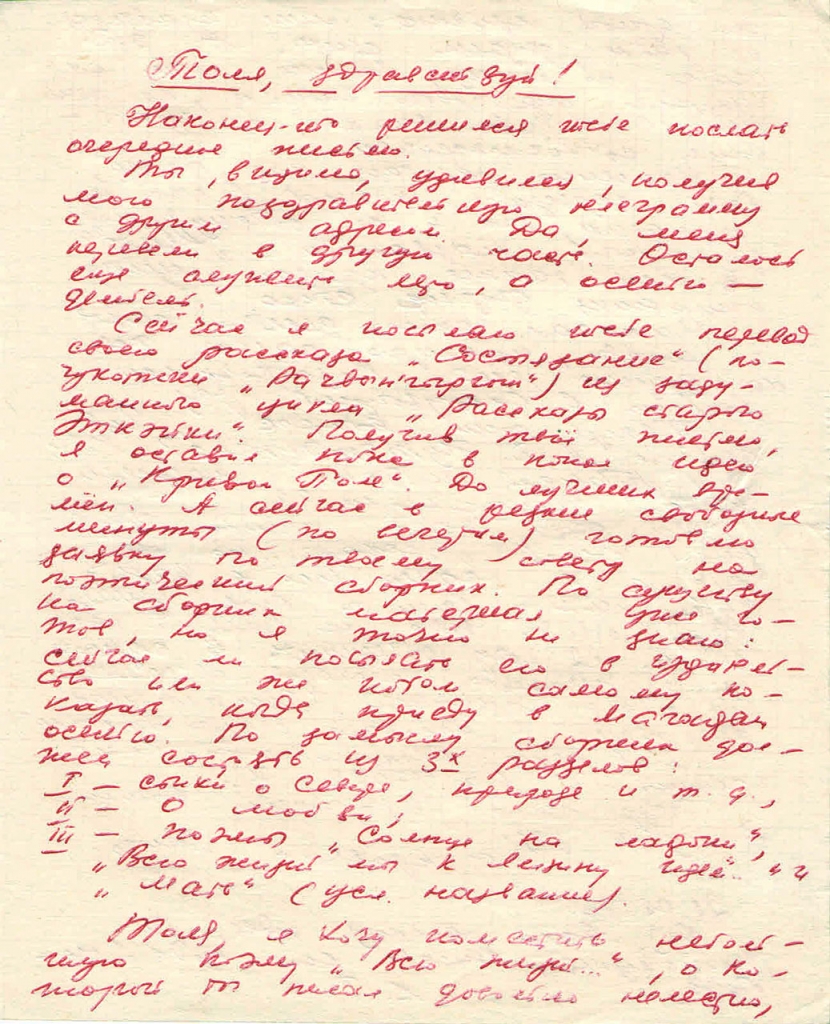 Толя, здравствуй!
Наконец-то решился тебе послать
очередное письмо.
Ты, видимо, удивился, получив
мою поздравительную телеграмму
с другим адресом. Да, меня
перевели в другую часть. Осталось
еще служить лето, а осенью —
дембель.
Сейчас я посылаю тебе перевод
своего рассказа „Состязание" (по-
чукотски) из заду-
манного цикла „Рассказы старого
Эткэйки". Получив твоё письмо,
я оставил пока в покое идею
о „Кривой Поле". До лучших вре-
мён. А сейчас в редкие свободные
минуты (по вечерам) готовлю
заявку по твоему совету на
поэтический сборник. По существу
на сборник материал уже го-
тов, но я точно не знаю:
сейчас ли посылать его в издатель-
ство или же потом самому по-
казать, когда приеду в Магадан
осенью. По замыслу сборник дол-
жен состоять из 3х разделов:
I — стихи о Севере, природе и т.д.,
II — О любви;
III — поэмы „Солнце на ладони",
„Всю жизнь мы к Ленину идём..." и
„Мать" (усл. название).
Толя, я хочу поместить неболь-
шую поэму „Всю жизнь...", о ко-
торой ты писал довольно нелестно,